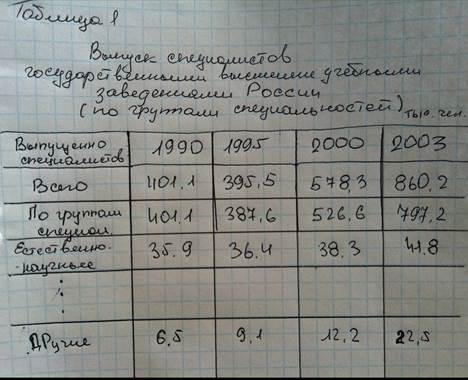 Таблица 1
Выпуск специалистов
государственными высшими учебными
заведениями России
(по группам специальностей) тыс. чел.
Выпущенно специалистов 1990 1995 2000 2003
Всего 401.1 395,5 578,3 860,2
По группам специал. 401.1 387,6 526,6 797,2
Естественно-научные 35.9 36.4 38.3 41.8
Другие 6,5 9,1 12,2 22,5